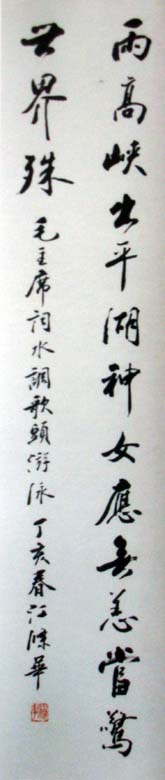 雨高峽出平湖神女應無恙當驚
世界殊 毛主席詞水調歌頭游泳 丁亥春 江華